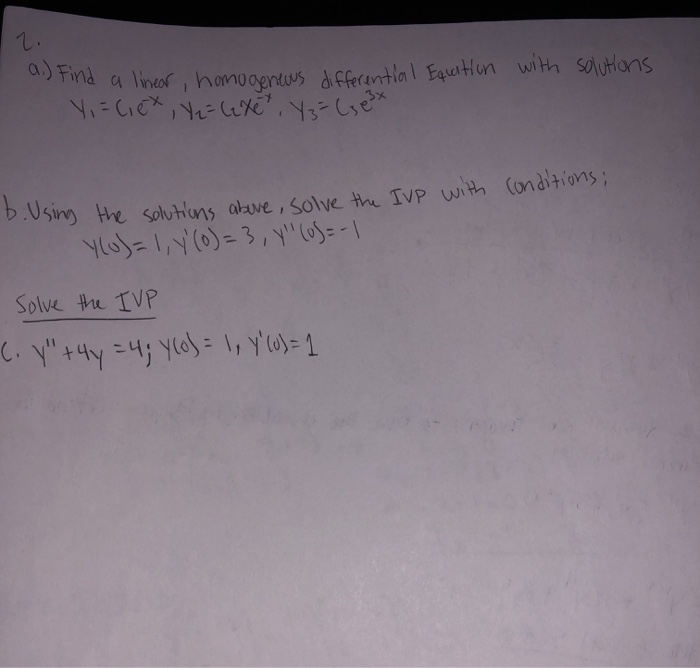 2.
a.) Find a linear, homogeneous differential Equation with solutions
y₁ = c₁e^x, y₂ = c₂xe^-x, y₃ = c₃e^3x
b. Using the solutions above, solve the IVP with conditions;
y(0) = 1, y'(0) = 3, y''(0) = -1
Solve the IVP
c. y'' + 4y = 4; y(0) = 1, y'(0) = 1